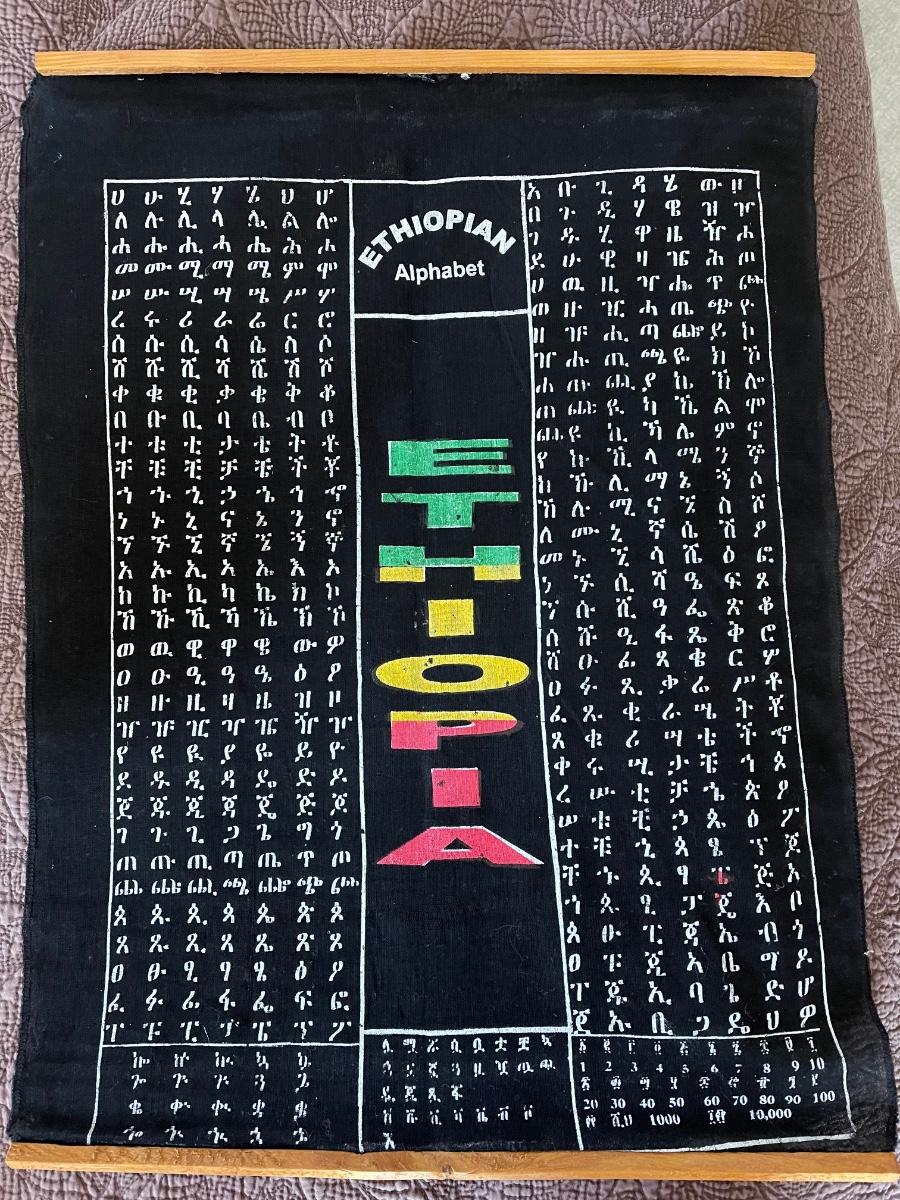 ሀ ሁ ሂ ሃ ሄ ህ ሆ
ለ ሉ ሊ ላ ሌ ል ሎ
ሐ ሑ ሒ ሓ ሔ ሕ ሖ
መ ሙ ሚ ማ ሜ ም ሞ
ሠ ሡ ሢ ሣ ሤ ሥ ሦ
ረ ሩ ሪ ራ ሬ ር ሮ
ሰ ሱ ሲ ሳ ሴ ስ ሶ
ሸ ሹ ሺ ሻ ሼ ሽ ሾ
ቀ ቁ ቂ ቃ ቄ ቅ ቆ
በ ቡ ቢ ባ ቤ ብ ቦ
ተ ቱ ቲ ታ ቴ ት ቶ
ቸ ቹ ቺ ቻ ቼ ች ቾ
ኀ ኁ ኂ ኃ ኄ ኅ ኆ
ነ ኑ ኒ ና ኔ ን ኖ
ኘ ኙ ኚ ኛ ኜ ኝ ኞ
አ ኡ ኢ ኣ ኤ እ ኦ
ከ ኩ ኪ ካ ኬ ክ ኮ
ኸ ኹ ኺ ኻ ኼ ኽ ኾ
ወ ዉ ዊ ዋ ዌ ው ዎ
ዐ ዑ ዒ ዓ ዔ ዕ ዖ
ዘ ዙ ዚ ዛ ዜ ዝ ዞ
ዠ ዡ ዢ ዣ ዤ ዥ ዦ
የ ዩ ዪ ያ ዬ ይ ዮ
ደ ዱ ዲ ዳ ዴ ድ ዶ
ጀ ጁ ጂ ጃ ጄ ጅ ጆ
ገ ጉ ጊ ጋ ጌ ግ ጎ
ጠ ጡ ጢ ጣ ጤ ጥ ጦ
ጨ ጩ ጪ ጫ ጬ ጭ ጮ
ጰ ጱ ጲ ጳ ጴ ጵ ጶ
ጸ ጹ ጺ ጻ ጼ ጽ ጾ
ፀ ፁ ፂ ፃ ፄ ፅ ፆ
ፈ ፉ ፊ ፋ ፌ ፍ ፎ
ፐ ፑ ፒ ፓ ፔ ፕ ፖ
ኰ ኲ ኵ ኳ ኴ
ጐ ጒ ጕ ጓ ጔ
ቈ ቊ ቍ ቋ ቌ
ኈ ኊ ኍ ኋ ኌ
ETHIOPIAN
Alphabet
ETHIOPIA
አ ቡ ጊ ዳ ሄ ው ዞ
በ ጉ ዲ ሃ ዌ ዝ ዦ
ገ ዱ ሂ ዋ ዜ ዥ ሖ
ደ ሁ ዊ ዛ ዤ ሕ ጦ
ሀ ዉ ዚ ዣ ሔ ጥ ጮ
ወ ዙ ዢ ሓ ጤ ጭ ዮ
ዘ ዡ ሒ ጣ ጬ ይ ኮ
ዠ ሑ ጢ ጫ ዬ ክ ኾ
ሐ ጡ ጪ ያ ኬ ኽ ሎ
ጠ ጩ ዪ ካ ኼ ል ሞ
ጨ ዩ ኪ ኻ ሌ ም ኖ
የ ኩ ኺ ላ ሜ ን ኞ
ከ ኹ ሊ ማ ኔ ኝ ሶ
ኸ ሉ ሚ ና ኜ ስ ሾ
ለ ሙ ኒ ኛ ሴ ሽ ዖ
መ ኑ ኚ ሳ ሼ ዕ ፎ
ነ ኙ ሲ ሻ ዔ ፍ ጾ
ኘ ሱ ሺ ዓ ፌ ጽ ቆ
ሰ ሹ ዒ ፋ ጼ ቅ ሮ
ሸ ዑ ፊ ጻ ቄ ር ሦ
ዐ ፉ ጺ ቃ ሬ ሥ ቶ
ፈ ጹ ቂ ራ ሤ ት ቾ
ጸ ቁ ሪ ሣ ቴ ች ኆ
ቀ ሩ ሢ ታ ቼ ኅ ጶ
ረ ሡ ቲ ቻ ኄ ጵ ፆ
ሠ ቱ ቺ ኃ ጴ ፅ ፖ
ተ ቹ ኂ ጳ ፄ ፕ ጆ
ቸ ኁ ጲ ፃ ፔ ጅ ኦ
ኀ ጱ ፂ ፓ ጄ እ ቦ
ጰ ፁ ፒ ጃ ኤ ብ ጎ
ፀ ፑ ጂ ኣ ቤ ግ ዶ
ፐ ጁ ኢ ባ ጌ ድ ሆ
ጀ ኡ ቢ ጋ ዴ ህ ዎ
፩ ፪ ፫ ፬ ፭ ፮ ፯ ፰ ፱ ፲
1 2 3 4 5 6 7 8 9 10
20 30 40 50 60 70 80 90 100
1000 10,000